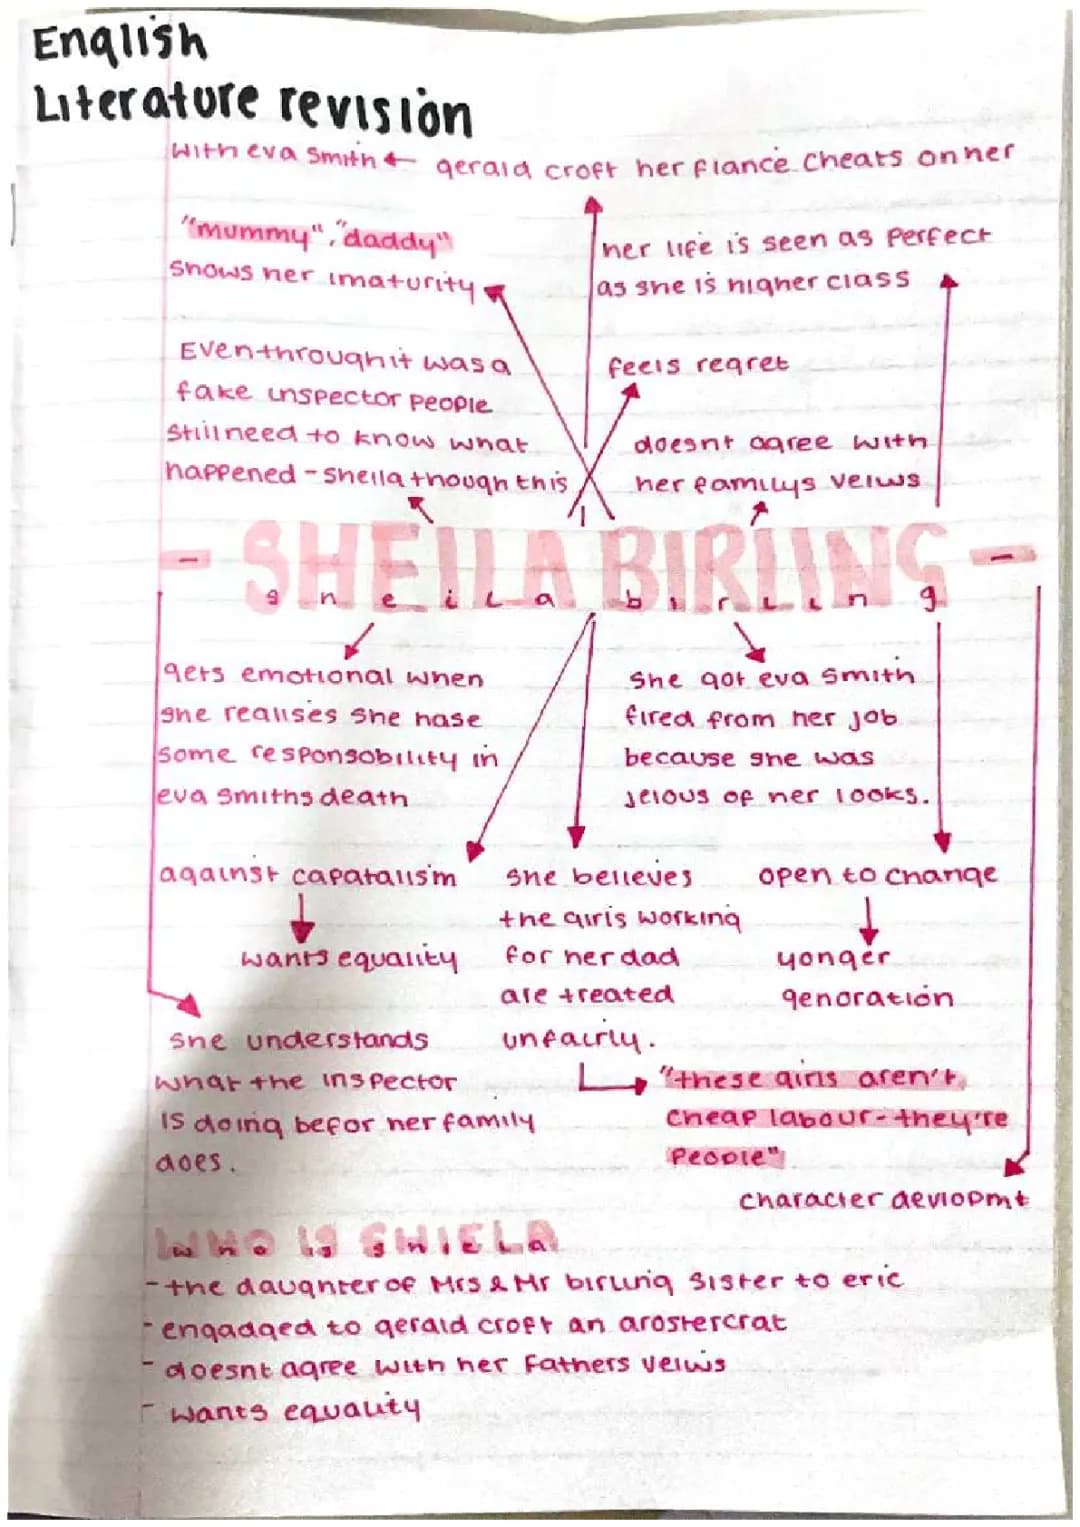 English
Literature revision
with eva smith ← gerald croft her fiance cheats on her
"mummy", "daddy"
shows her imaturity
her life is seen as perfect
as she is higher class
Eventhrough it was a
fake inspector people
still need to know what
happened - sheila though this
feels regret
doesnt agree with
her familys veiws
- SHEILA BIRLING -
sheila birling
gets emotional when
she realises she hase
some responsobility in
eva smiths death
she got eva smith
fired from her job
because she was
jelous of her looks.
against capatalism
wants equality
she believes
the girls working
for her dad
are treated
unfairly.
"these girls aren't
cheap labour - they're
people"
open to change
yonger
genoration
she understands
what the inspector
is doing befor her family
does.
character devlopmt
WHO IS SHIELA
who is shiela
- the daughter of Mrs & Mr birling sister to eric
- engadged to gerald croft an arostercrat
- doesnt agree with her fathers veiws
- wants equality